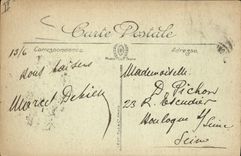 Carte Postale
Correspondance
Adresse
13/6
Bons baisers
Marcel
Mademoiselle
D. Pichon
23 R. Escudier
Boulogne s/ Seine
Seine